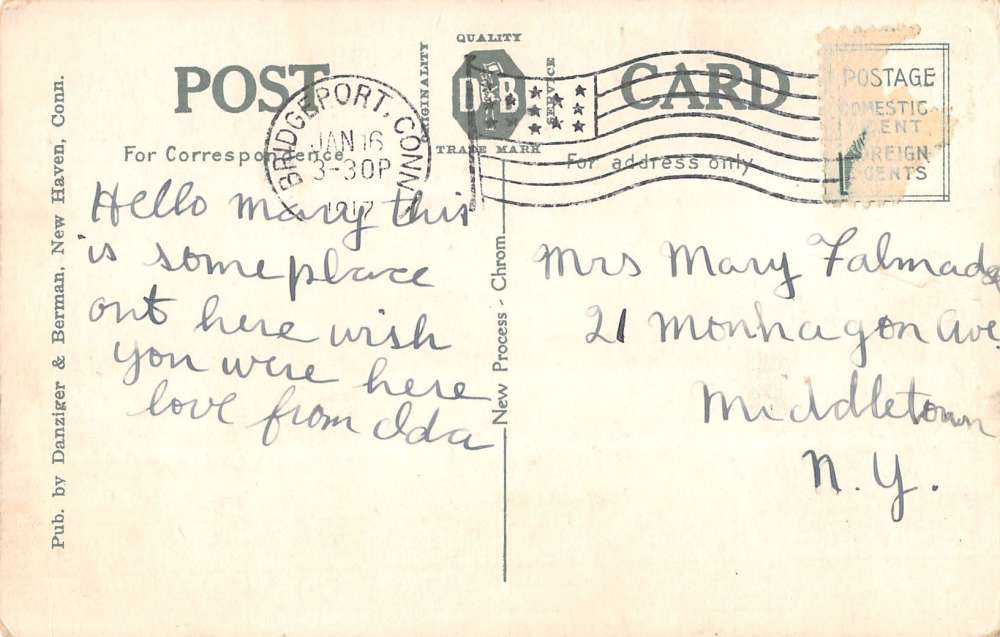 QUALITY
ORIGINALITY
D & B
SERVICE
TRADE MARK
POST CARD
For Correspondence
For address only
BRIDGEPORT, CONN.
JAN 16
3-30P
1917
POSTAGE
DOMESTIC
CENT
FOREIGN
CENTS
Pub. by Danziger & Berman, New Haven, Conn.
New Process - Chrom.
Hello mary this
is some place
out here wish
you were here
love from Ida
Mrs Mary Falmade
21 Monhagon Ave.
Middletown
N. Y.